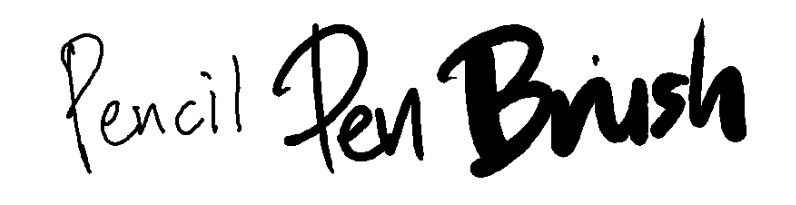 Pencil Pen Brush